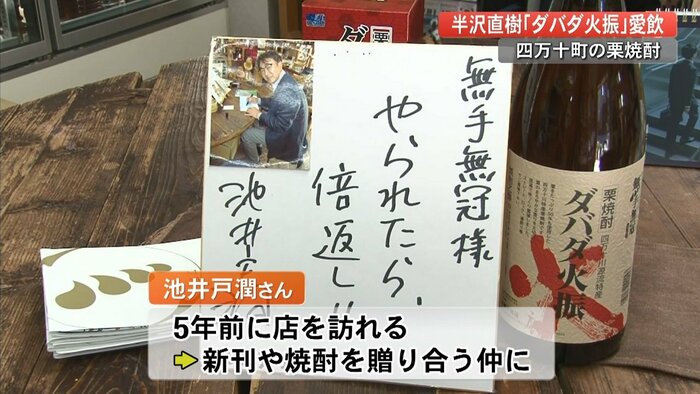 半沢直樹「ダバダ火振」愛飲
四万十町の栗焼酎
栗
ダ
無手無冠様
やられたら、
倍返し!!
池井戸潤
栗焼酎
四万十川源流特産
ダバダ火振
池井戸潤さん
5年前に店を訪れる
⇨新刊や焼酎を贈り合う仲に